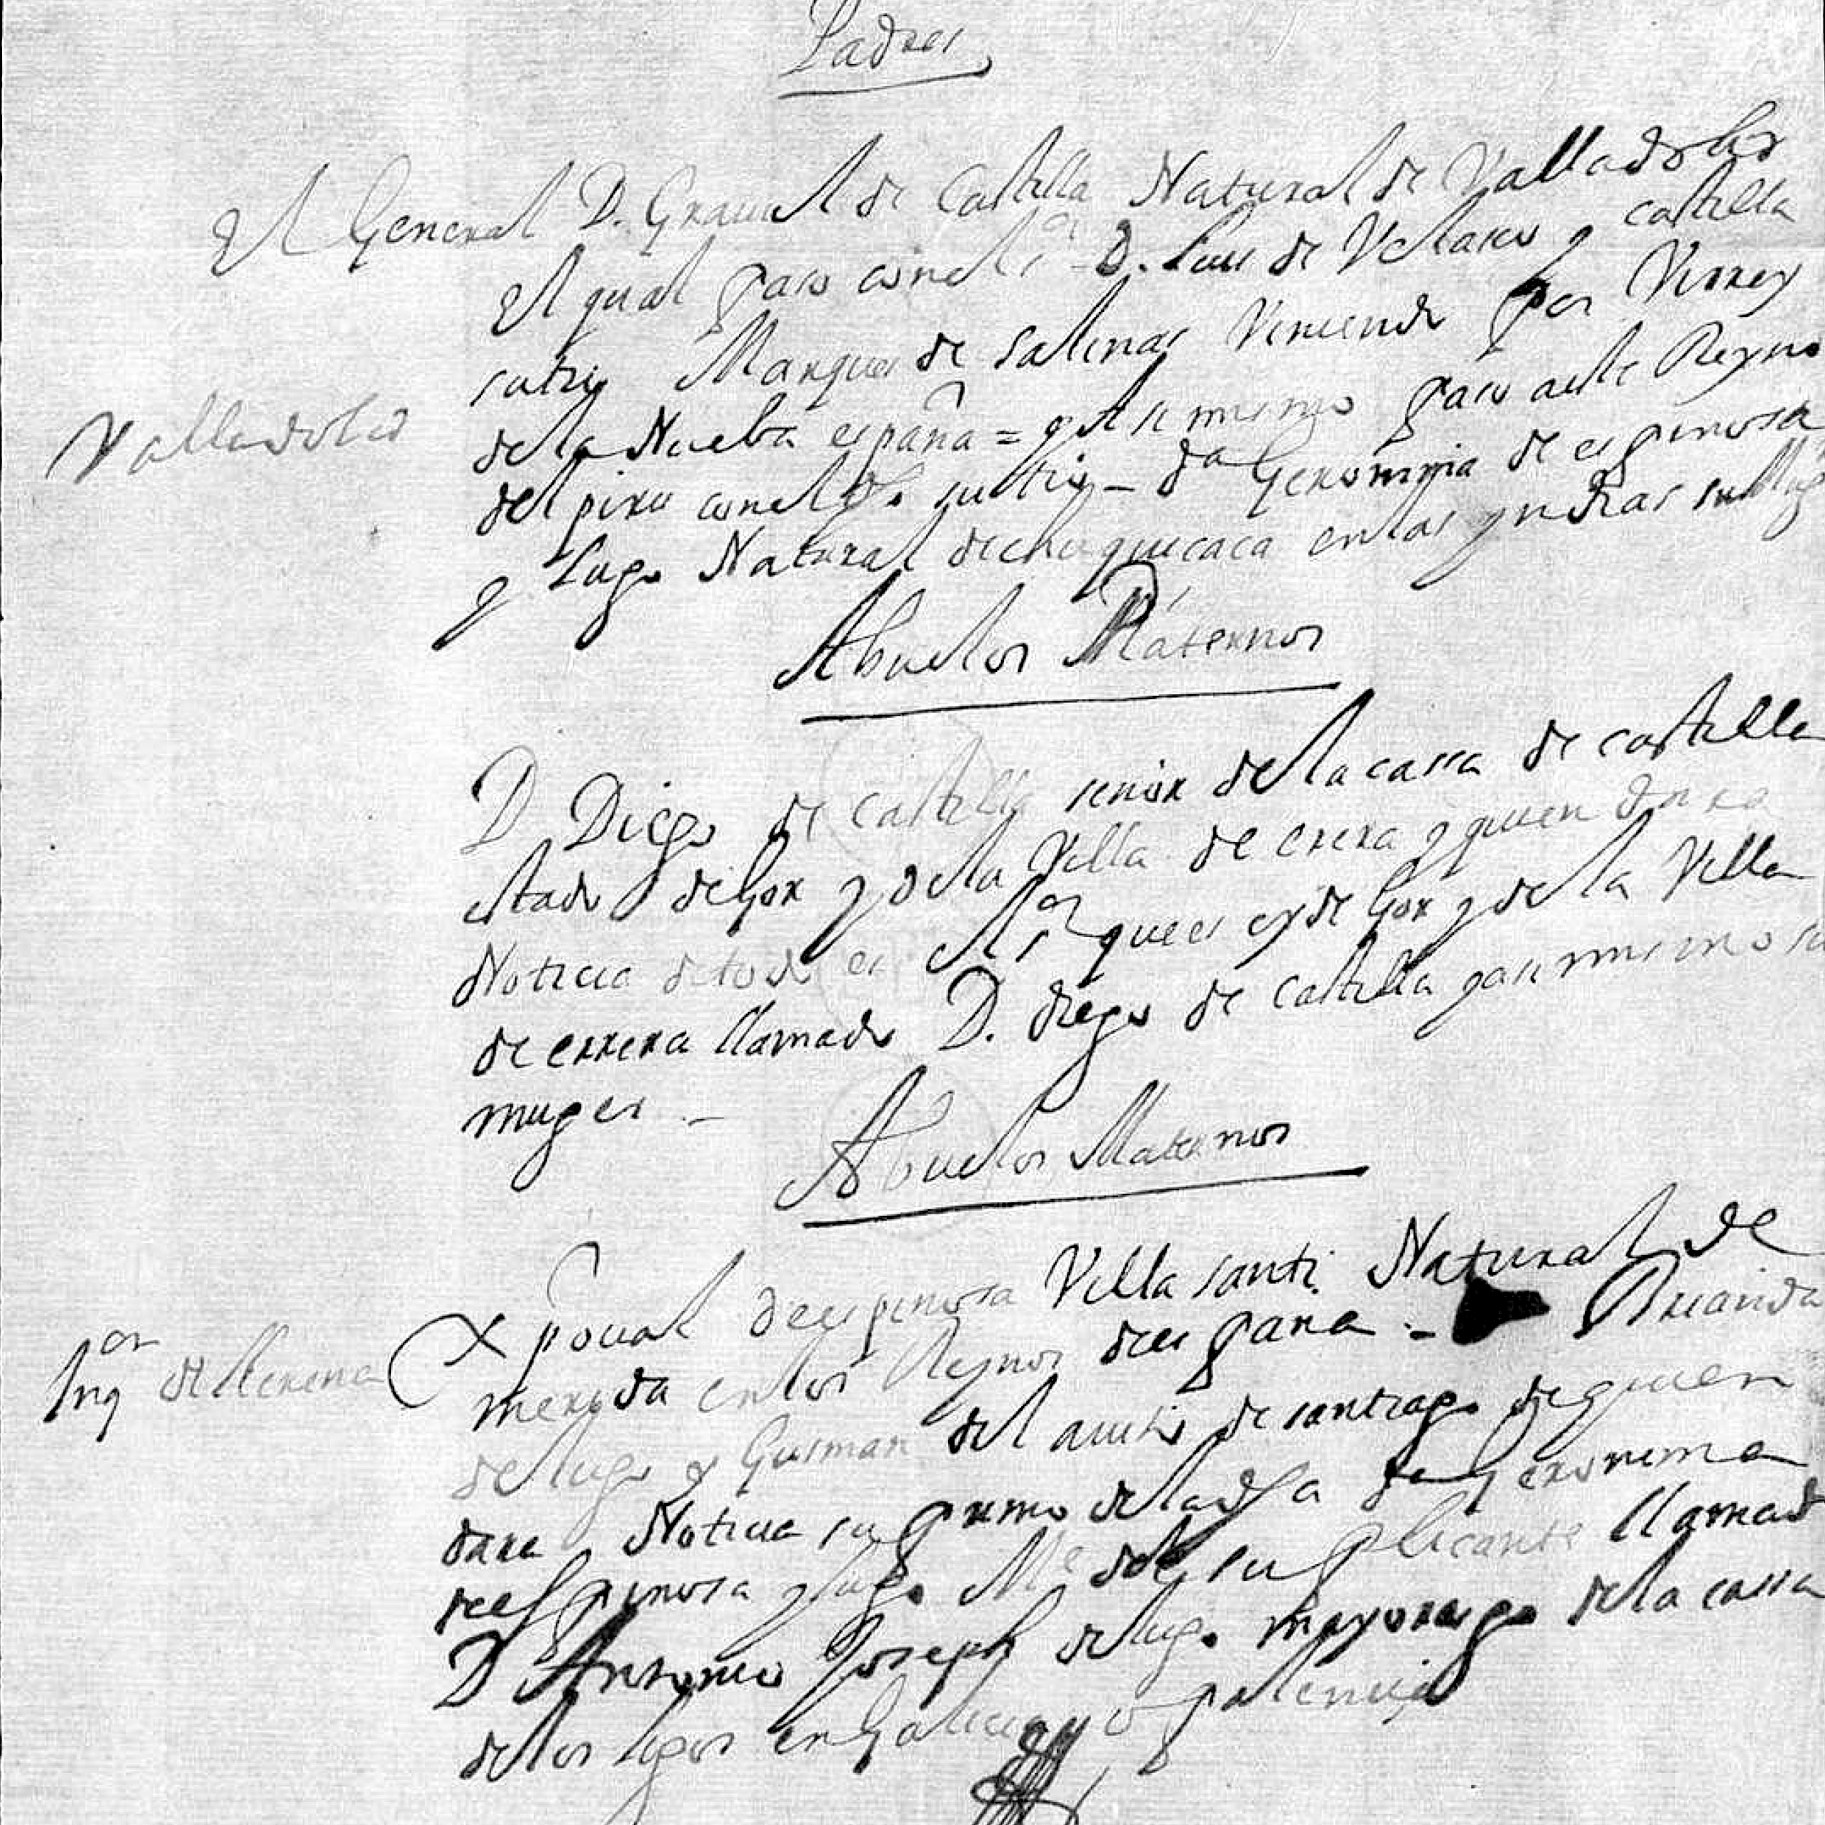 Padres
El General D. Graviel de Castilla Natural de Valladolid
el qual paso con el sr. D. Luis de Velasco y castilla
su tio Marques de salinas viniendo por Virrey
Valladolid
de la Nueba españa = y el mismo paso a este Reyno
del piru con el dho. su tio — da Geronima de espinosa
y Lugo Natural de chuquicaca en las yndias su Mugr
Abuelos Paternos
D Diego de castilla señor de la cassa de castilla
estado de Gor y de la Villa de erera y quien dara
Noticia de todo es el sor que es oy de Gor y de la Villa
de errera llamado D. diego de castilla y assi mismo su
muger —
Abuelos Maternos
Xpoual de espinosa Villasanti Natural de
Inqor de llerena
meryda en los Reynos de españa — Brianda
de lugo y Gusman del auito de santiago de quien
dara Noticia su primo de la dha da Geronima
de espinosa y lugo Me del suplicante llamado
D Antonio Joseph de lugo mayorasgo de la cassa
de los lugos en Galicia y o palencia